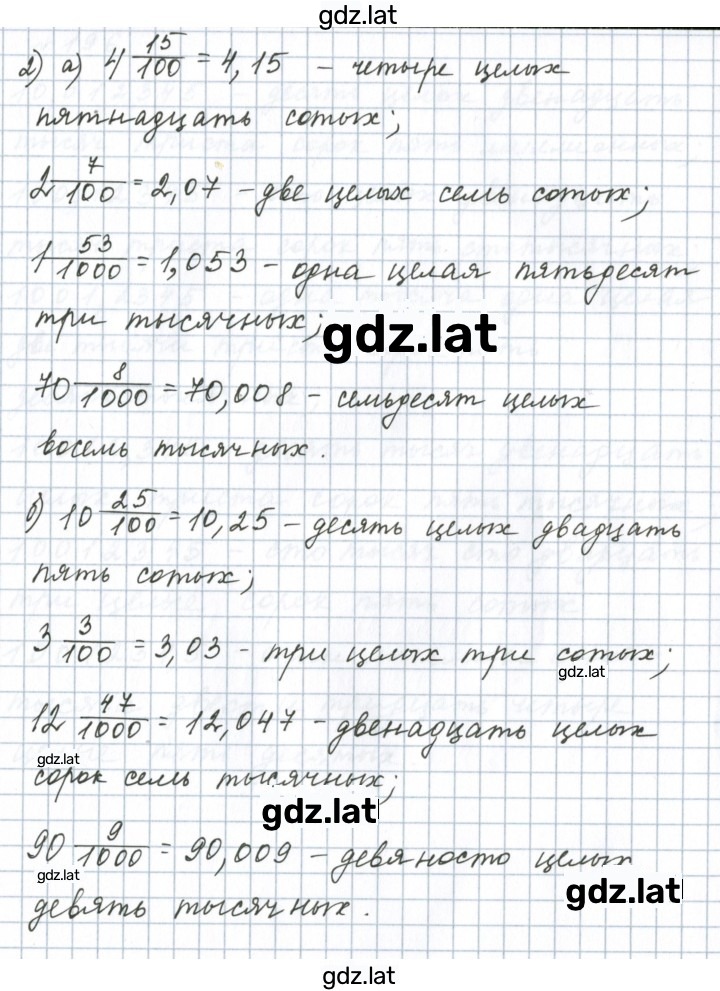 gdz.lat
2) а) 4 15/100 = 4,15 – четыре целых
пятнадцать сотых;
2 7/100 = 2,07 – две целых семь сотых;
1 53/1000 = 1,053 – одна целая пятьдесят
три тысячных;
gdz.lat
70 8/1000 = 70,008 – семьдесят целых
восемь тысячных.
б) 10 25/100 = 10,25 – десять целых двадцать
пять сотых;
3 3/100 = 3,03 – три целых три сотых;
gdz.lat
12 47/1000 = 12,047 – двенадцать целых
gdz.lat
сорок семь тысячных;
gdz.lat
90 9/1000 = 90,009 – девяносто целых
gdz.lat
gdz.lat
девять тысячных.
gdz.lat